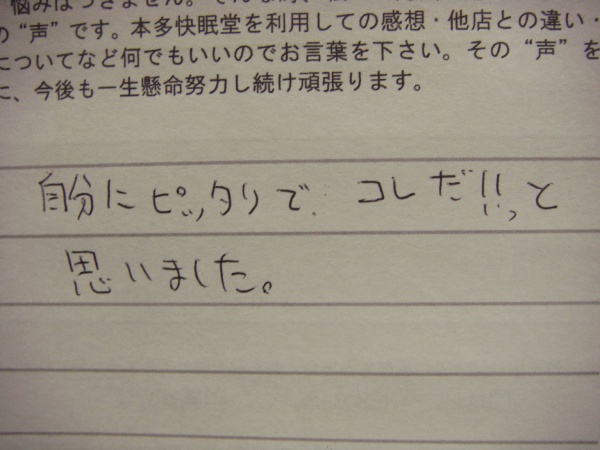 悩みはつきません。
の“声”です。本多快眠堂を利用しての感想・他店との違い・
についてなど何でもいいのでお言葉を下さい。その“声”を
に、今後も一生懸命努力し続け頑張ります。
自分にピッタリで、コレだ!!っと
思いました。